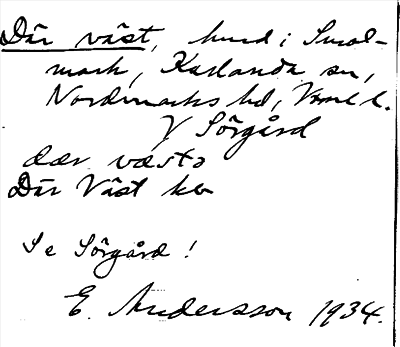 Där väst, hmd i Smol-
mark, Karlanda sn,
Nordmarks hd, Vrml l.
V Sörgård
dær væstə
Där Väst kn
Se Sörgård!
E. Andersson 1934.